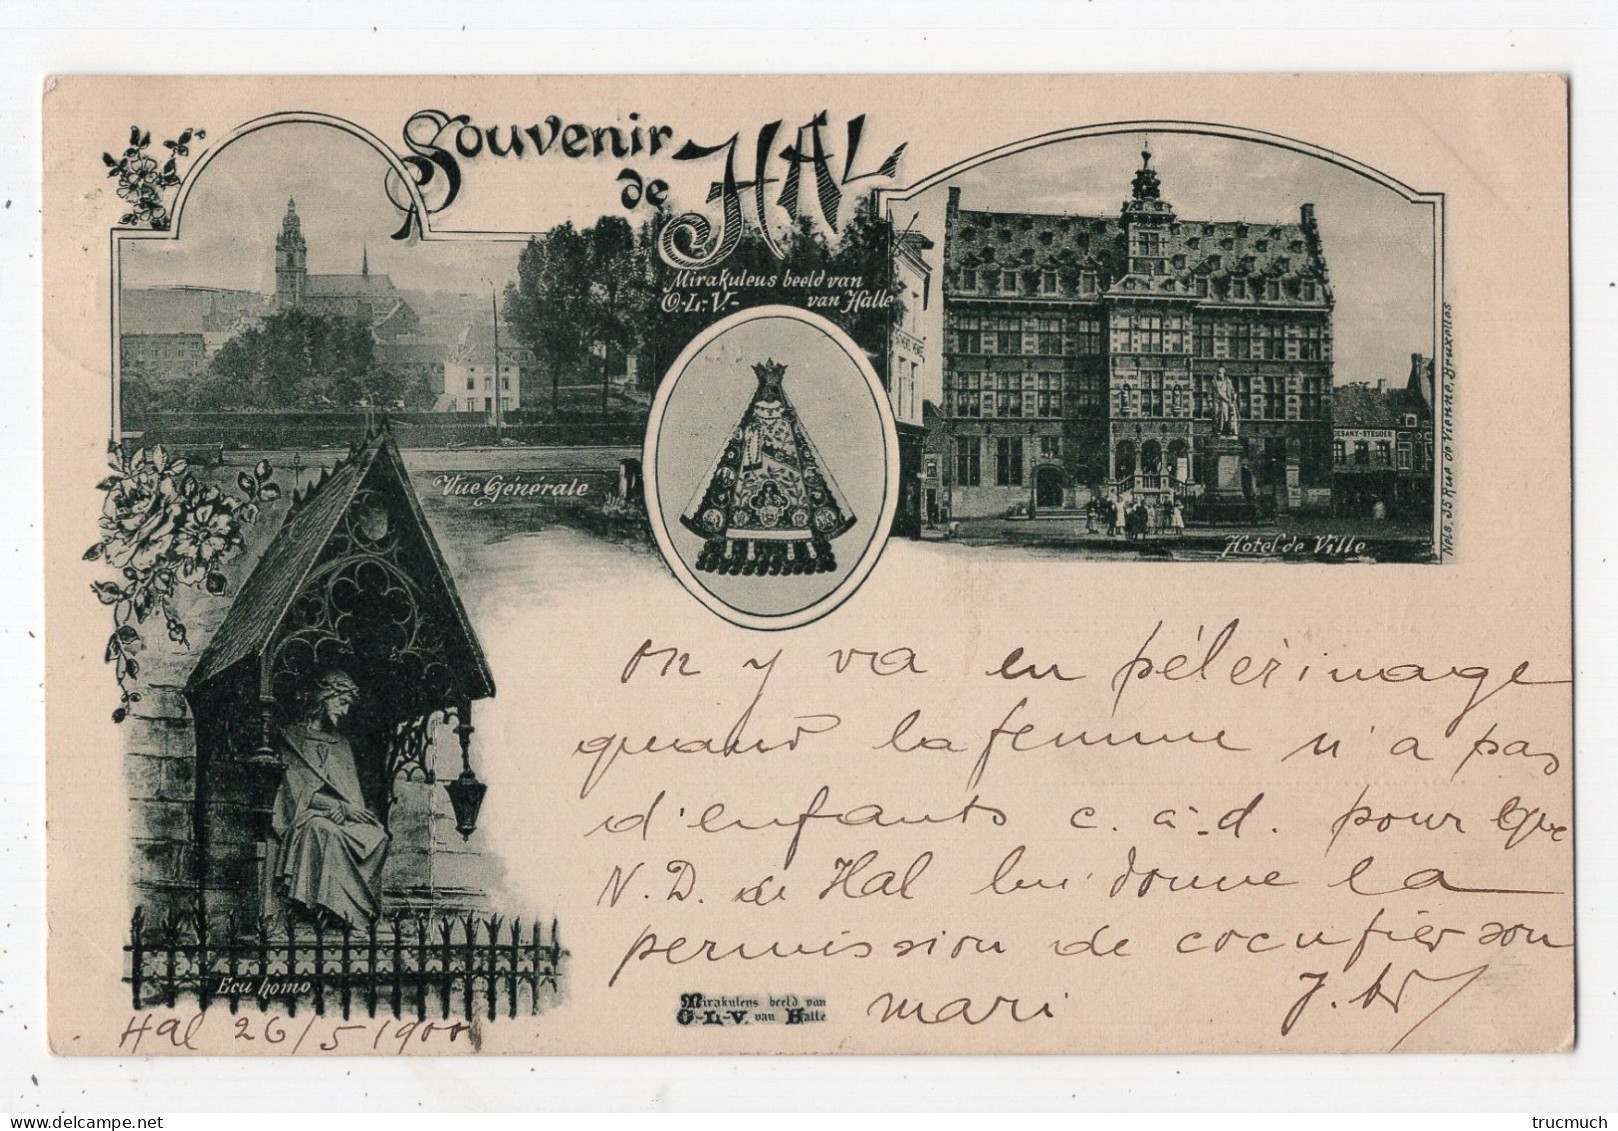 Souvenir
de HAL
Mirakuleus beeld van
O.-L.-V.- van Halle
Vue Générale
DESANY-STEUDER
Hotel de Ville
Nels, 35 Rue de Vienne, Bruxelles
Ecu homo
On y va en pélerimage
quand la femme n'a pas
d'enfants c. à-d. pour que
N. D. de Hal lui donne la
permission de cocufier son
mari
Mirakulens beeld van
O.-L.-V. van Halle
Hal 26/5 1900
trucmuch